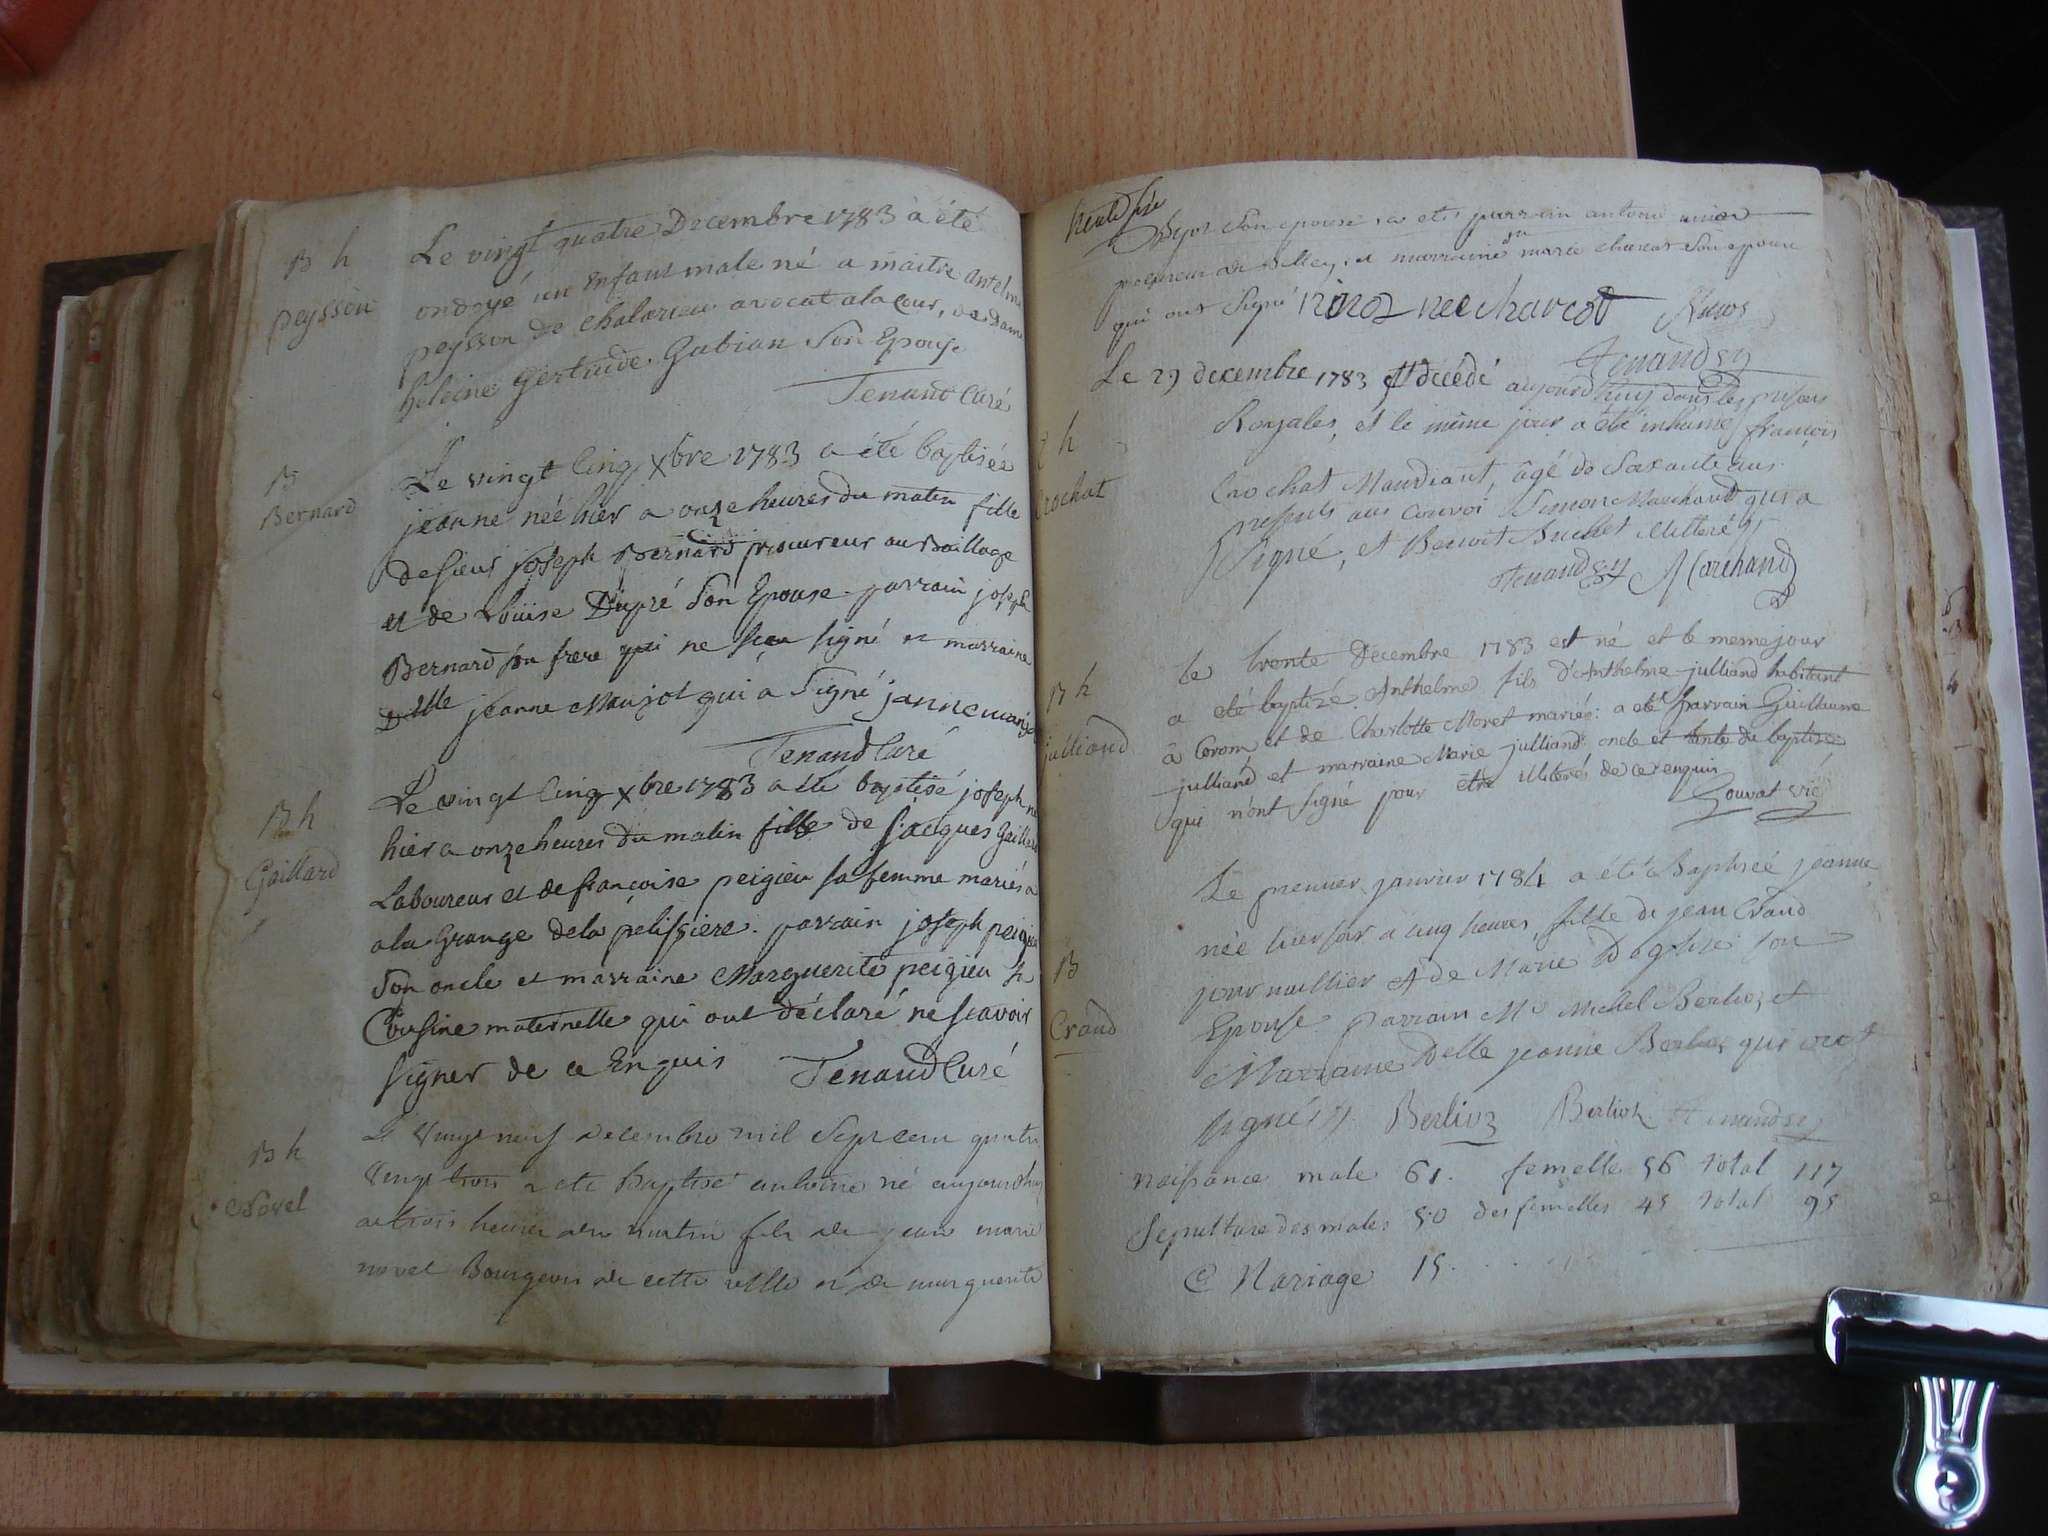 B h
peysson
Le vingt quatre Decembre 1783 à été
ondoyé un enfant male né a maitre antelme
peysson de Chalarieu avocat ala Cour, de Dame
heleine Gertrude Gubian Son Epouse
Tenand Curé
B
Bernard
Le vingt Cinq Xbre 1783 a été baptisée
jeanne née hier a onze heures du matin fille
de Sieur joseph Bernard procureur au Baillage
et de Louise Dupré Son Epouse. parrain joseph
Bernard son frere qui ne Sceu signé et marraine
Delle jeanne Maujot qui a Signé janne maujot
Tenand Curé
B h
Gaillard
Le vingt Cinq Xbre 1783 a été baptisé joseph né
hier a onze heures du matin fille de jacques Gaillard
Laboureur et de francoise peigieu sa femme mariés a
ala Grange dela pelissiere. parrain joseph peigieu
Son oncle et marraine Marguerite peigieu h
Cousine maternelle qui ont déclaré ne scavoir
signer de ce Enquis Tenand Curé
B h
Novel
Le Vingt neuf decembre mil Sept cent quatre
Vingt trois a ete Baptisé antoine né aujourdhuy
a trois heures du matin fils de jean marie
novel Bourgeois de cette ville et de marguerite
Son epouse a ete parrain antoine
procureur de Belley, et marraine marie charcot Son epouse
qui ont Signé née charcot
Tenand
Le 29 decembre 1783 est décédé aujourdhuy dans les prisons
Royales, et le même jour a été inhumé francois
h
Crochat
Crochat Mandiant, âgé de Soixante ans
presents au Convoi Simon Marchand qui a
Signé, et Benoit Buchet illitéré
Tenand Marchand
B h
julliand
Le trente Decembre 1783 est né et le meme jour
a été baptizé Anthelme fils d'Anthelme julliand habitant
à Coron et de Charlotte Moret mariés: a eté parrain Guillaume
julliand et marraine Marie julliand oncle et tante du baptisé
qui n'ont signé pour etre illiterés de ce enquis
Gouvat vic
B
Crand
Le premier janvier 1784 a été Baptisée jeanne
née hier soir a cinq heures, fille de jean Crand
journaillier et de Marie Son
Epouse. parrain Mr Michel Berlioz et
Marraine Delle jeanne Berlioz qui ont
signés Berlioz Berlioz Tenand
Naissance male 61. femelle 56 total 117
Sepulture des males 50 des femelles 45 total 95
Mariage 15.